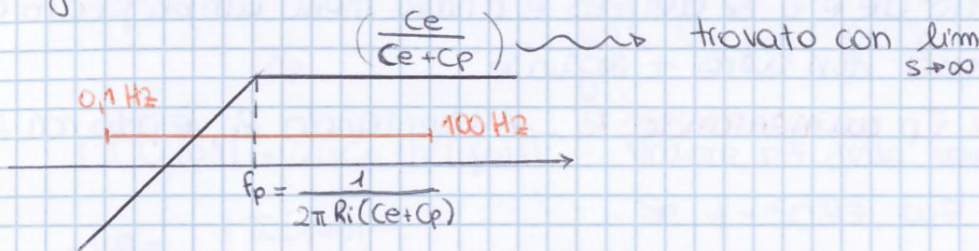 (Ce / Ce+Cp) trovato con lim s→∞
0,1 Hz
100 Hz
fp = 1 / 2π Ri (Ce+Cp)